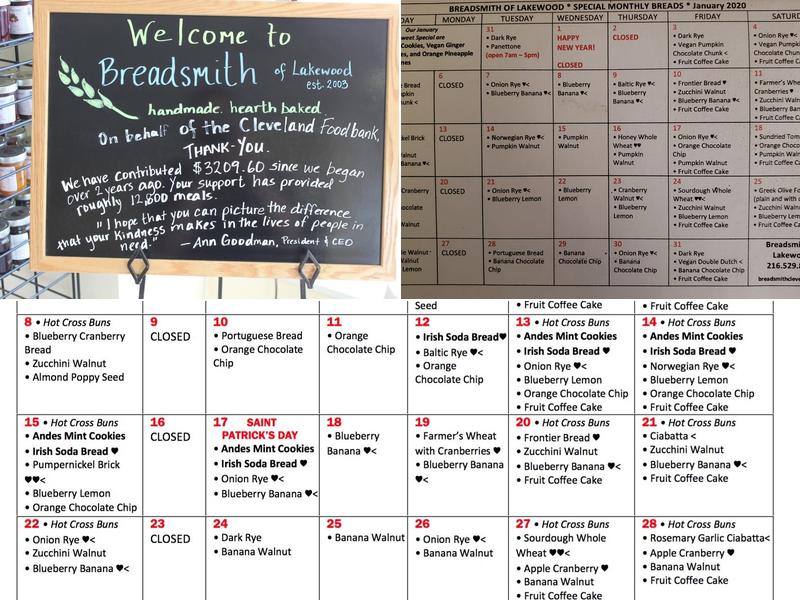 Welcome to
Breadsmith of Lakewood
est. 2003
handmade. hearth baked
On behalf of the Cleveland Foodbank,
THANK-YOU.
We have contributed $3209.60 since we began
over 2 years ago. Your support has provided
roughly 12,800 meals.
"I hope that you can picture the difference
that your kindness makes in the lives of people in
need."
—Ann Goodman, President & CEO
BREADSMITH OF LAKEWOOD * SPECIAL MONTHLY BREADS * January 2020
DAY MONDAY TUESDAY WEDNESDAY THURSDAY FRIDAY SATU
Our January
weet Special are
Cookies, Vegan Ginger
es, and Orange Pineapple
31
• Dark Rye
• Panettone
(open 7am – 5pm)
1
HAPPY
NEW YEAR!
CLOSED
2
CLOSED
3
• Dark Rye
• Vegan Pumpkin
Chocolate Chunk <
• Fruit Coffee Cake
4
• Onion Rye ♥<
• Vegan Pumpkin
Chocolate Chu
• Fruit Coffee C
Bread
pkin
hunk <
6
CLOSED
7
• Onion Rye ♥<
• Blueberry Banana ♥<
8
• Blueberry
Banana ♥<
9
• Baltic Rye ♥<
• Blueberry
Banana ♥<
10
• Frontier Bread ♥
• Zucchini Walnut
• Blueberry Banana ♥<
• Fruit Coffee Cake
11
• Farmer's Whea
Cranberries ♥
• Zucchini Walnu
• Blueberry Bana
• Fruit Coffee Ca
kel Brick
alnut
anana ♥<
13
CLOSED
14
• Norwegian Rye ♥<
• Pumpkin Walnut
15
• Pumpkin
Walnut
16
• Honey Whole
Wheat ♥♥
• Pumpkin
Walnut
17
• Onion Rye ♥<
• Orange Chocolate
Chip
• Pumpkin Walnut
• Fruit Coffee Cake
18
• Sundried Toma
• Orange Chocol
Chip
• Pumpkin Waln
• Fruit Coffee Ca
Cranberry
alnut
20
CLOSED
21
• Onion Rye ♥<
• Blueberry Lemon
22
• Blueberry
Lemon
23
• Cranberry
Walnut ♥<
• Blueberry
Lemon
24
• Sourdough Whole
Wheat ♥♥<
• Zucchini Walnut
• Blueberry Lemon
• Fruit Coffee Cake
25
• Greek Olive Fo
(plain and with ch
• Zucchini Walnu
• Blueberry Lemo
• Fruit Coffee Cak
27
CLOSED
28
• Portuguese Bread
• Banana Chocolate
Chip
29
• Banana
Chocolate
Chip
30
• Onion Rye ♥<
• Banana
Chocolate Chip
31
• Dark Rye
• Vegan Double Dutch <
• Banana Chocolate Chip
• Fruit Coffee Cake
Breadsmi
Lakewo
216.529.
breadsmithcleve
Seed
• Fruit Coffee Cake
• Fruit Coffee Cake
8 • Hot Cross Buns
• Blueberry Cranberry
Bread
• Zucchini Walnut
• Almond Poppy Seed
9
CLOSED
10
• Portuguese Bread
• Orange Chocolate
Chip
11
• Orange
Chocolate Chip
12
• Irish Soda Bread♥
• Baltic Rye ♥<
• Orange
Chocolate Chip
13 • Hot Cross Buns
• Andes Mint Cookies
• Irish Soda Bread ♥
• Onion Rye ♥<
• Blueberry Lemon
• Orange Chocolate Chip
• Fruit Coffee Cake
14 • Hot Cross Buns
• Andes Mint Cookies
• Irish Soda Bread ♥
• Norwegian Rye ♥<
• Blueberry Lemon
• Orange Chocolate Chip
• Fruit Coffee Cake
15 • Hot Cross Buns
• Andes Mint Cookies
• Irish Soda Bread ♥
• Pumpernickel Brick
♥♥<
• Blueberry Lemon
• Orange Chocolate Chip
16
CLOSED
17 SAINT
PATRICK'S DAY
• Andes Mint Cookies
• Irish Soda Bread ♥
• Onion Rye ♥<
• Blueberry Banana ♥<
18
• Blueberry
Banana ♥<
19
• Farmer's Wheat
with Cranberries ♥
• Blueberry Banana
♥<
20 • Hot Cross Buns
• Frontier Bread ♥
• Zucchini Walnut
• Blueberry Banana ♥<
• Fruit Coffee Cake
21 • Hot Cross Buns
• Ciabatta <
• Zucchini Walnut
• Blueberry Banana ♥<
• Fruit Coffee Cake
22 • Hot Cross Buns
• Onion Rye ♥<
• Zucchini Walnut
• Blueberry Banana ♥<
23
CLOSED
24
• Dark Rye
• Banana Walnut
25
• Banana Walnut
26
• Onion Rye ♥<
• Banana Walnut
27 • Hot Cross Buns
• Sourdough Whole
Wheat ♥♥<
• Apple Cranberry ♥
• Banana Walnut
• Fruit Coffee Cake
28 • Hot Cross Buns
• Rosemary Garlic Ciabatta<
• Apple Cranberry ♥
• Banana Walnut
• Fruit Coffee Cake